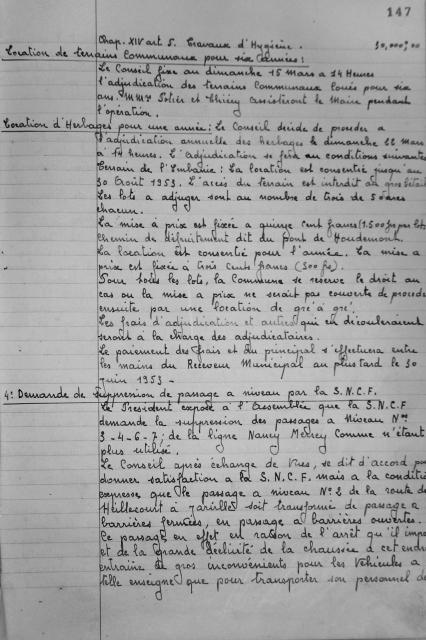 147
Chap. XIV art 5. Travaux d'Hygiène. 30,000,00
Location de terrains Communaux pour six années:
Le Conseil fixe au dimanche 15 Mars a 14 Heures
l'adjudication des terrains Communaux loués pour six
ans MMrs Potier et Thiéry assisteront le Maire pendant
l'opération.
Location d'Herbages pour une année: Le Conseil décide de procéder a
l'adjudication annuelle des herbages le dimanche 22 Mars
à 14 heures. L'adjudication se fera au conditions suivantes
Terrain de l'Embanie: La location est consentie jusqu'au
30 Août 1953. L'accès du terrain est interdit au gros bétail
Les lots a adjuger sont au nombre de trois de 50 ares
chacun.
La mise à prix est fixée a quinze cent francs (1.500 frs par lot.
Chemin de défruitment dit du pont de Houdemont.
La location est consentie pour l'année. La mise a
prix est fixée à trois cents francs (300 frs).
Pour tous les lots, la Commune se réserve le droit au
cas ou la mise a prix ne serait pas couverte de procéder
ensuite par une location de gré a gré.
Les frais d'adjudication et autres qui en découleraient
seront à la charge des adjudicataires.
Le paiement des frais et du principal s'effectuera entre
les mains du Receveur Municipal au plus tard le 30
juin 1953 -
4: Demande de suppression de passage a niveau par la S.N.C.F.
Le Président expose à l'Assemblée que la S.N.C.F
demande la suppression des passages a Niveau Nos
3-4-6-7; de la ligne Nancy Merrey Comme n'étant
plus utilisé.
Le Conseil après échange de Vues, se dit d'accord pour
donner satisfaction a la S.N.C.F. mais a la condition
expresse que le passage a niveau No 2 de la route de
Heillecourt à Jarville soit transformé de passage a
barrières fermées, en passage a barrières ouvertes.
Ce passage en effet en raison de l'arrêt qu'il impose
et de la grande déclivité de la chaussée a cet endroit
entraine de gros inconvénients pour les Véhicules a
telle enseigne que pour transporter son personnel de